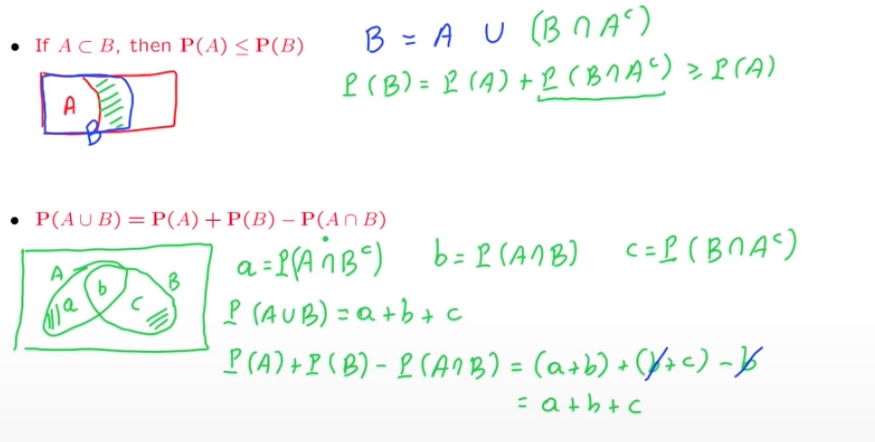 • If A ⊂ B, then P(A) ≤ P(B)
B = A ∪ (B ∩ Aᶜ)
P(B) = P(A) + P(B∩Aᶜ) ≥ P(A)
A
B
• P(A ∪ B) = P(A) + P(B) − P(A ∩ B)
a = P(A∩Bᶜ) b = P(A∩B) c = P(B∩Aᶜ)
A B
a b c
P(A∪B) = a + b + c
P(A) + P(B) − P(A∩B) = (a+b) + (b+c) − b
= a + b + c